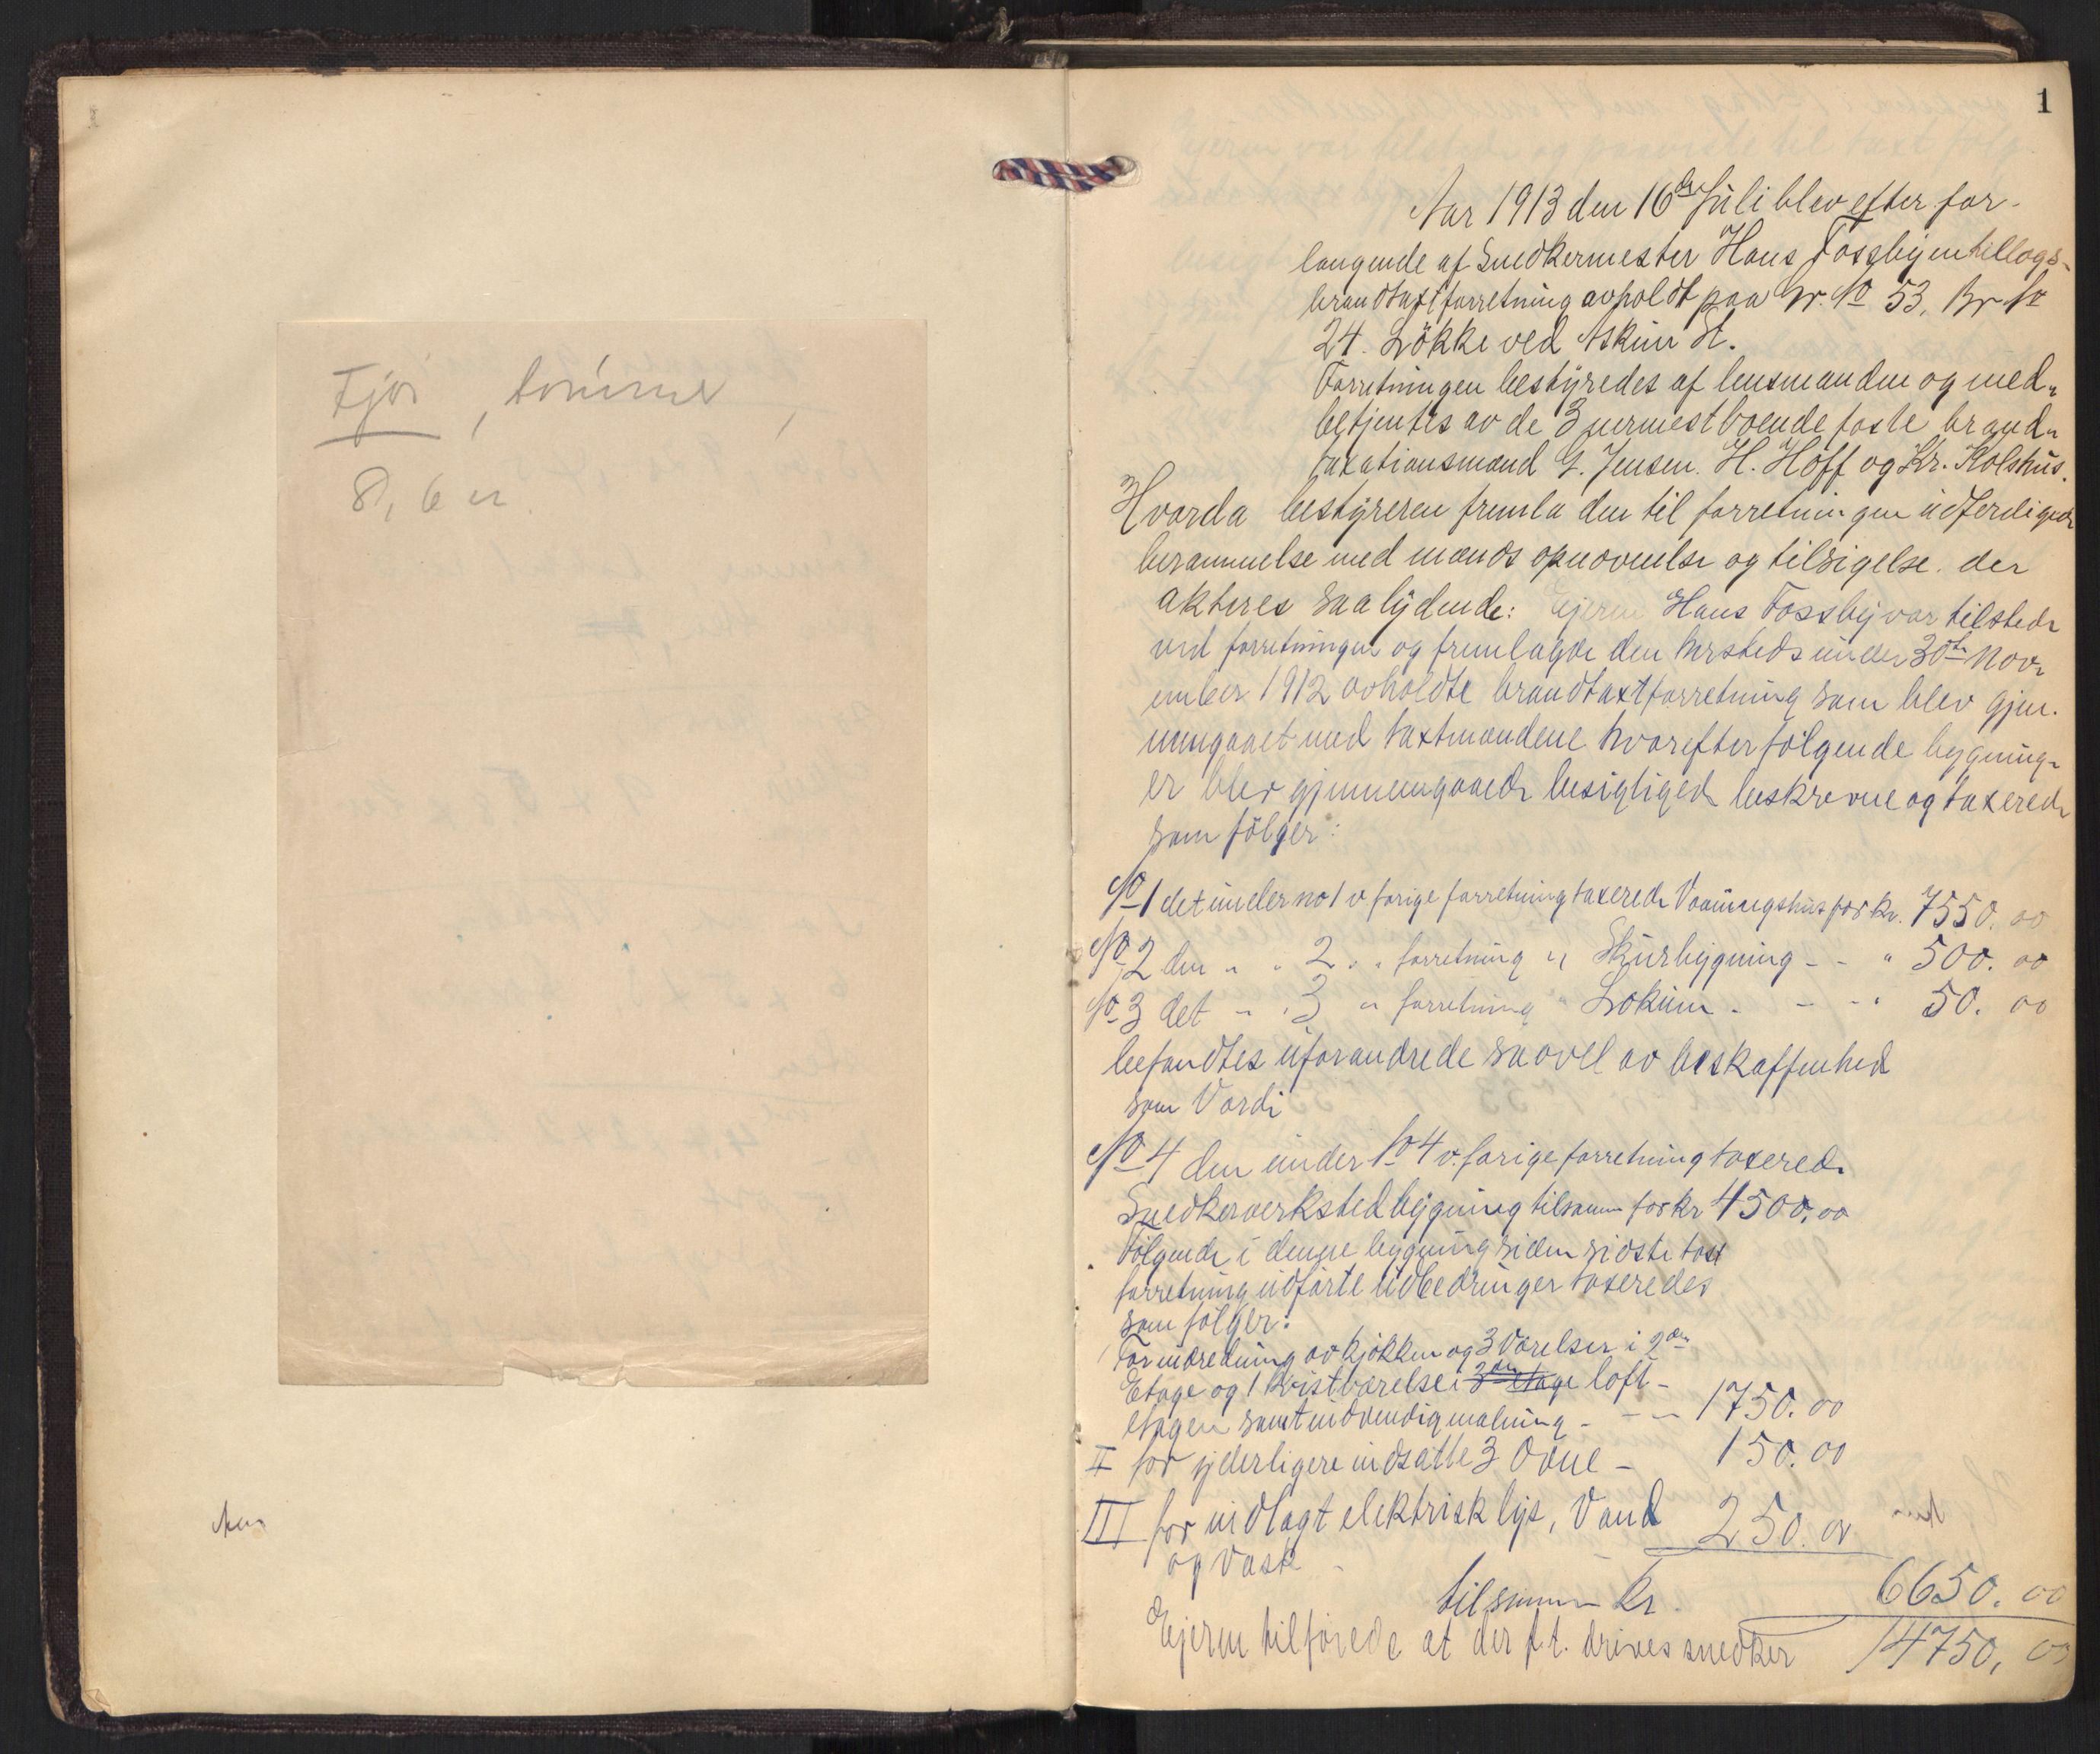 Fjøs, tømmer,
8,6 m
1
Aar 1913 den 16de Juli blev efter for-
langende af Snedkermester Hans Fossby en tillægs-
brandtaxtforretning avholdt paa Gr. No 53, Br No
24. Løkke ved Askim St.
Forretningen bestyredes af lensmanden og med-
betjentes av de 3 nermest boende faste brand-
taxationsmænd G. Jensen. H. Hoff og Kr. Kolshus.
Hvorda bestyreren fremla den til forretningen udferdigede
berammelse med mænds opnævnelse og tilsigelse. der
akteres saalydende: Ejeren Hans Fossby var tilstede
ved forretningen og fremlagde den hersteds under 30te Nov-
ember 1912 avholdte brandtaxtforretning som blev gjen-
nemgaaet med taxtmændene hvorefter følgende bygning-
er blev gjennemgaaede besigtigede beskrevne og taxerede
som følger:
No 1 det under no 1 v forige forretning taxerede Vaaningshus for kr. 7550.00
No 2 den " " 2 " " forretning " Skurbygning - - " 500.00
No 3 det " " 3 " forretning " Lokum - - - " 50.00
befandtes uforandrede saavel av beskaffenhed
som Værdi
No 4 den under No 4 v. forige forretning taxerede
Snedkerverksted bygning tilsamm for kr 4500,00
Følgende i denne bygning siden sidste taxt
forretning udførte Udbedringer taxeredes
som følger:
For indredning av kjøkken og 3 Værelser i 2den
Etage og 1 kvistværelse i 3die etage loft-
etagen samt indvendig malning - - - 1750.00
II for yderligere indsatte 3 Ovne - 150.00
III for indlagt elektrisk lys, Vand 250.00
og vask -
tilsammen Kr. 6650.00
Ejeren tilførede at der f.t. drives snedker 14750,00